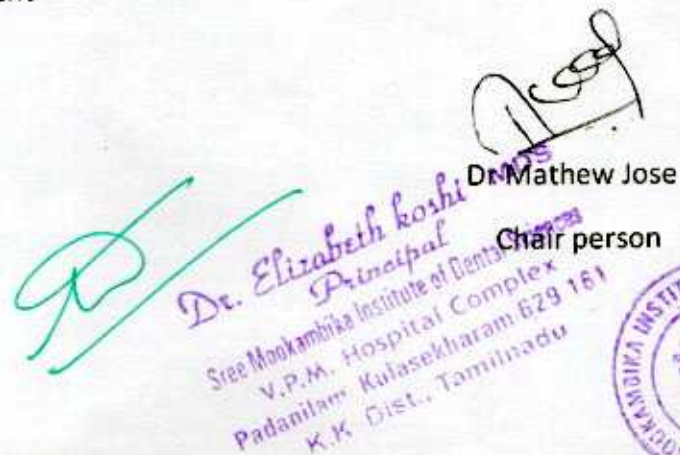 Dr Mathew Jose
Chair person
Dr. Elizabeth koshi MDS
Principal
Sree Mookambika Institute of Dental Sciences
V.P.M. Hospital Complex
Padanilam Kulasekharam 629 161
K.K Dist., Tamilnadu
MOOKAMBIKA INSTIT